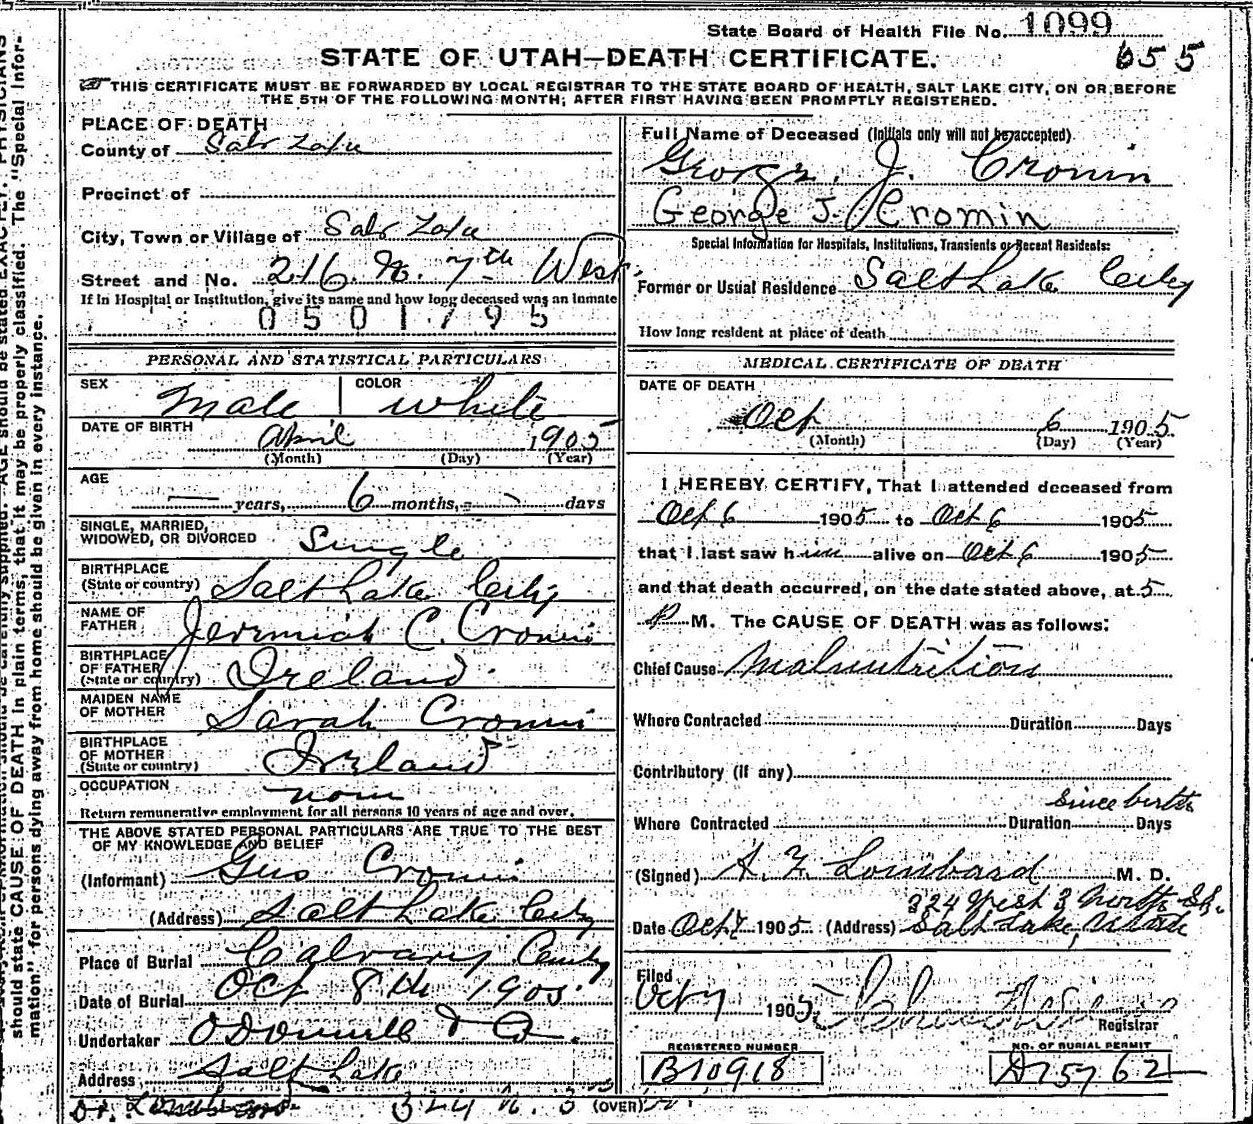 State Board of Health File No. 1099
655
STATE OF UTAH—DEATH CERTIFICATE.
THIS CERTIFICATE MUST BE FORWARDED BY LOCAL REGISTRAR TO THE STATE BOARD OF HEALTH, SALT LAKE CITY, ON OR BEFORE
THE 5TH OF THE FOLLOWING MONTH; AFTER FIRST HAVING BEEN PROMPTLY REGISTERED.
PLACE OF DEATH
County of Salt Lake
Precinct of
City, Town or Village of Salt Lake
Street and No. 216 N. 7th West
If in Hospital or Institution, give its name and how long deceased was an inmate
0501795
PERSONAL AND STATISTICAL PARTICULARS
SEX Male COLOR White
DATE OF BIRTH April 1905
(Month) (Day) (Year)
AGE
— years, 6 months, - days
SINGLE, MARRIED,
WIDOWED, OR DIVORCED Single
BIRTHPLACE
(State or country) Salt Lake City
NAME OF
FATHER Jermiah C. Cronin
BIRTHPLACE
OF FATHER
(State or country) Ireland
MAIDEN NAME
OF MOTHER Sarah Cronin
BIRTHPLACE
OF MOTHER
(State or country) Ireland
OCCUPATION none
Return remunerative employment for all persons 10 years of age and over.
THE ABOVE STATED PERSONAL PARTICULARS ARE TRUE TO THE BEST
OF MY KNOWLEDGE AND BELIEF
(Informant) Gus Cronin
(Address) Salt Lake City
Place of Burial Calvary Cemty
Date of Burial Oct 8th 1905
Undertaker O'Donnell & Co.
Address Salt Lake
Dr. Lombard 324 N. 3
(OVER)
Full Name of Deceased (Initials only will not be accepted)
George J. Cronin
George J. Cromin
Special Information for Hospitals, Institutions, Transients or Recent Residents:
Former or Usual Residence Salt Lake City
How long resident at place of death
MEDICAL CERTIFICATE OF DEATH
DATE OF DEATH
Oct 6 1905
(Month) (Day) (Year)
I HEREBY CERTIFY, That I attended deceased from
Oct 6 1905 to Oct 6 1905
that I last saw him alive on Oct 6 1905
and that death occurred, on the date stated above, at 5
P M. The CAUSE OF DEATH was as follows:
Chief Cause Malnutrition
Where Contracted Duration Days
Contributory (if any)
since birth
Where Contracted Duration Days
(Signed) A. F. Lombard M. D.
324 West 3 North St.
Date Oct 7 1905 (Address) Salt Lake, Utah
Filed
Oct 7 1905
Registrar
REGISTERED NUMBER
B10918
NO. OF BURIAL PERMIT
A15762
should state CAUSE OF DEATH in plain terms, that it may be properly classified. The "Special Infor-
mation" for persons dying away from home should be given in every instance.